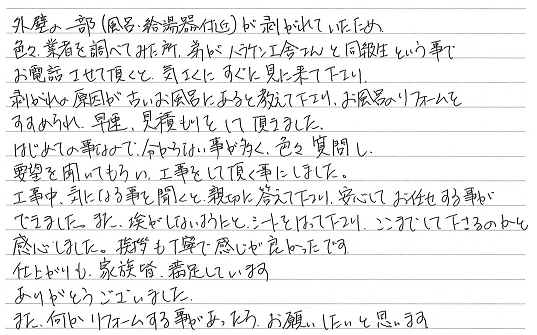 外壁の一部(風呂・給湯器付近)が剥がれていたため
色々、業者を調べてみた所、弟がハラケン工舎さんと同級生という事で
お電話させて頂くと、気さくにすぐに見に来て下さり、
剥がれの原因が古いお風呂にあると教えて下さり、お風呂のリフォームを
すすめられ、早速、見積もりをして頂きました。
はじめての事なので、分からない事が多く、色々質問し、
要望を聞いてもらい、工事をして頂く事にしました。
工事中、気になる事を聞くと、親切に答えて下さり、安心してお任せする事が
できました。また、埃がしないようにと、シートをはって下さり、ここまでして下さるのかと
感心しました。挨拶も丁寧で感じが良かったです
仕上がりも、家族皆、満足しています
ありがとうございました。
また、何かリフォームする事があったら、お願いしたいと思います